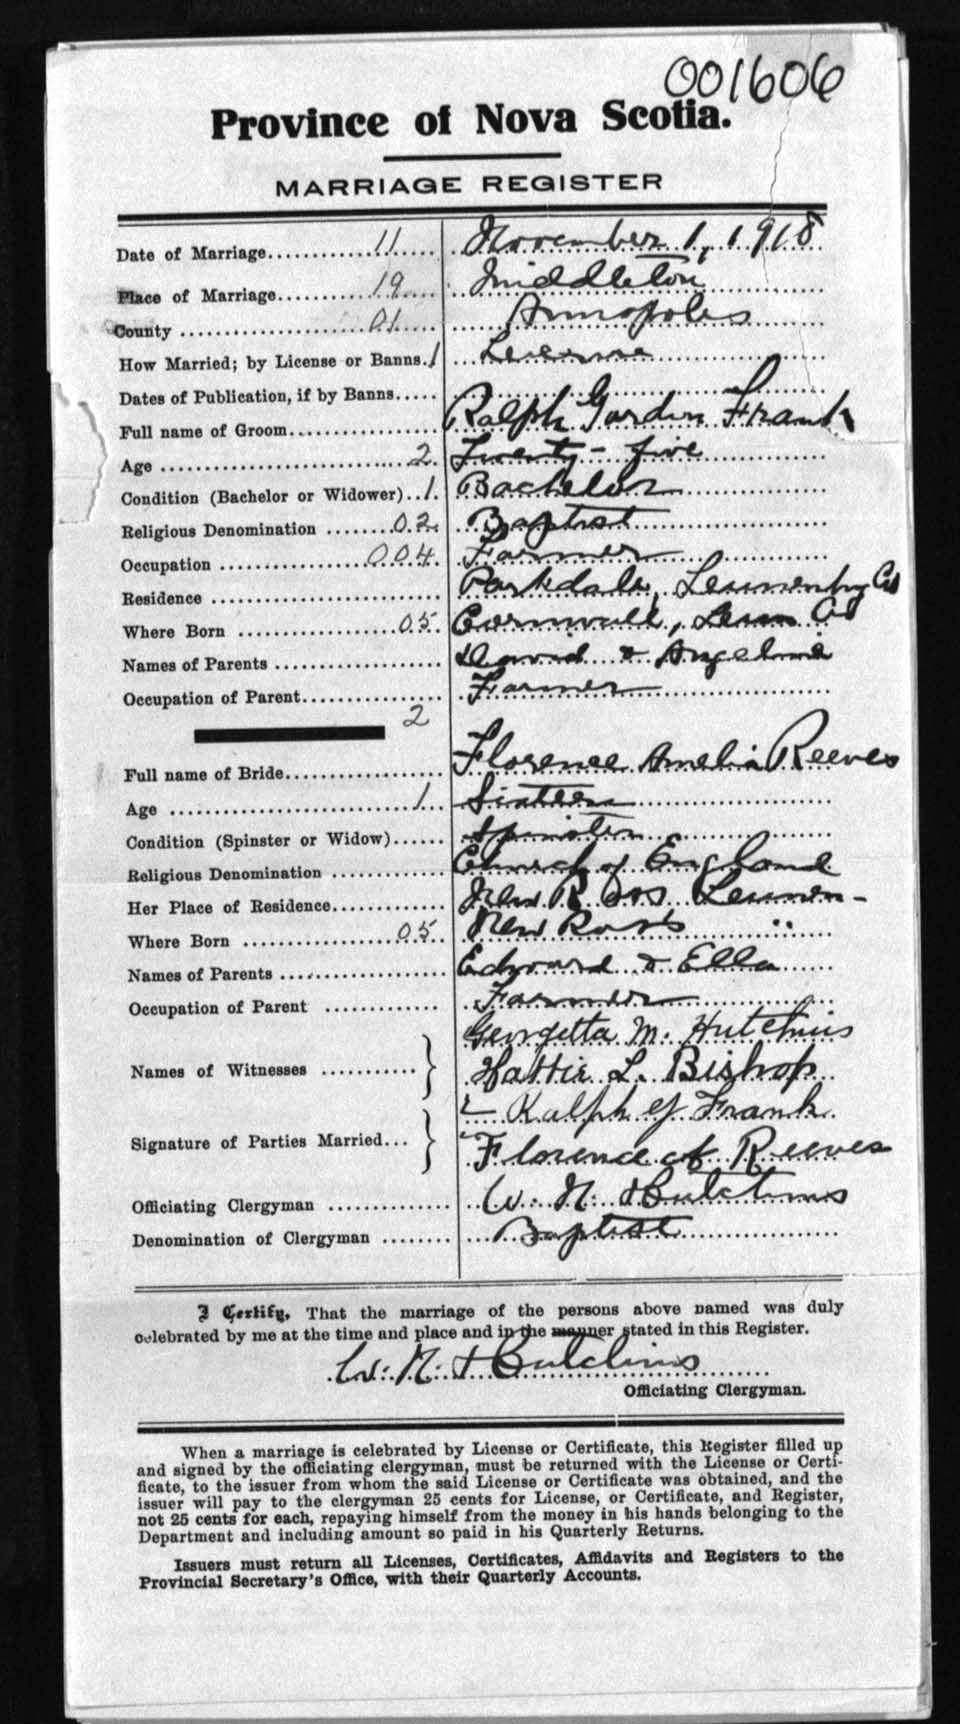 001606
Province of Nova Scotia.
MARRIAGE REGISTER
Date of Marriage 11 November 1, 1918
Place of Marriage 19 Middleton
County 01 Annapolis
How Married; by License or Banns. 1 License
Dates of Publication, if by Banns
Full name of Groom Ralph Gordon Frank
Age 2 Twenty-five
Condition (Bachelor or Widower) 1 Bachelor
Religious Denomination 02 Baptist
Occupation 004 Farmer
Residence Parkdale, Lunenburg Co
Where Born 05 Cornwall, Lun Co
Names of Parents David & Angeline
Occupation of Parent Farmer
2
Full name of Bride Florence Amelia Reeves
Age 1 Sixteen
Condition (Spinster or Widow) Spinster
Religious Denomination Church of England
Her Place of Residence New Ross Lunen-
Where Born 05 New Ross "
Names of Parents Edward & Ella
Occupation of Parent Farmer
Names of Witnesses Georgetta M. Hutchins
Hattie L. Bishop
Signature of Parties Married Ralph G Frank
Florence A Reeves
Officiating Clergyman W. N. Hutchins
Denomination of Clergyman Baptist
I Certify, That the marriage of the persons above named was duly
celebrated by me at the time and place and in the manner stated in this Register.
W. N. Hutchins
Officiating Clergyman.
When a marriage is celebrated by License or Certificate, this Register filled up
and signed by the officiating clergyman, must be returned with the License or Certi-
ficate, to the issuer from whom the said License or Certificate was obtained, and the
issuer will pay to the clergyman 25 cents for License, or Certificate, and Register,
not 25 cents for each, repaying himself from the money in his hands belonging to the
Department and including amount so paid in his Quarterly Returns.
Issuers must return all Licenses, Certificates, Affidavits and Registers to the
Provincial Secretary's Office, with their Quarterly Accounts.